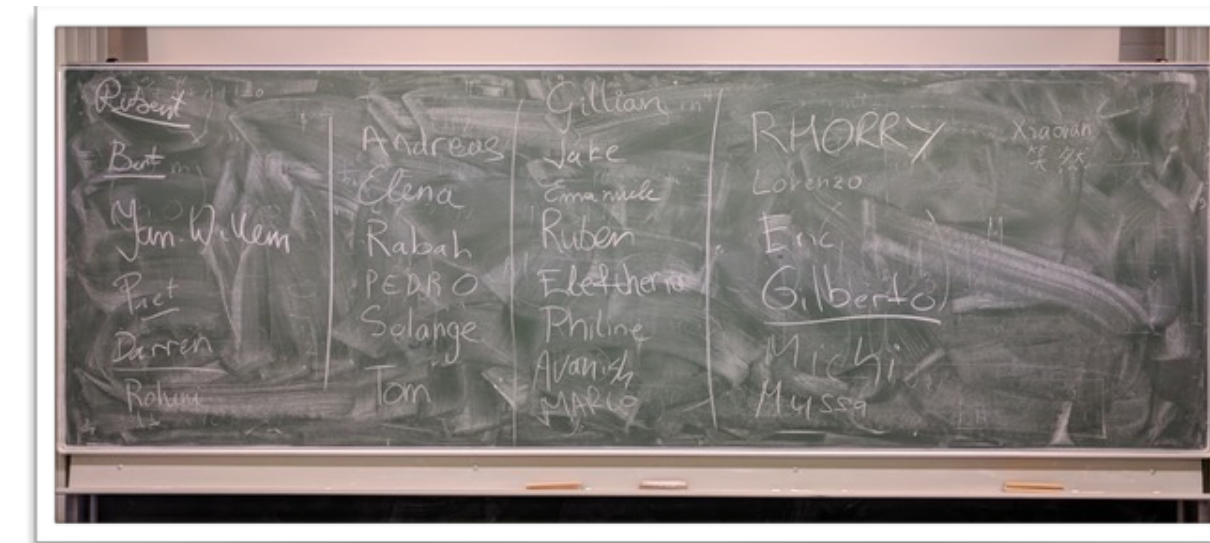 Robert
Bert
Jan-Willem
Piet
Darren
Rohini
Andreas
Elena
Rabah
PEDRO
Solange
Tom
Gillian
Jake
Emanuele
Ruben
Eleftheria
Philine
Avanish
MARIO
RHORRY
Lorenzo
Eric
Gilberto
Michi
Mussa
Xiaoran